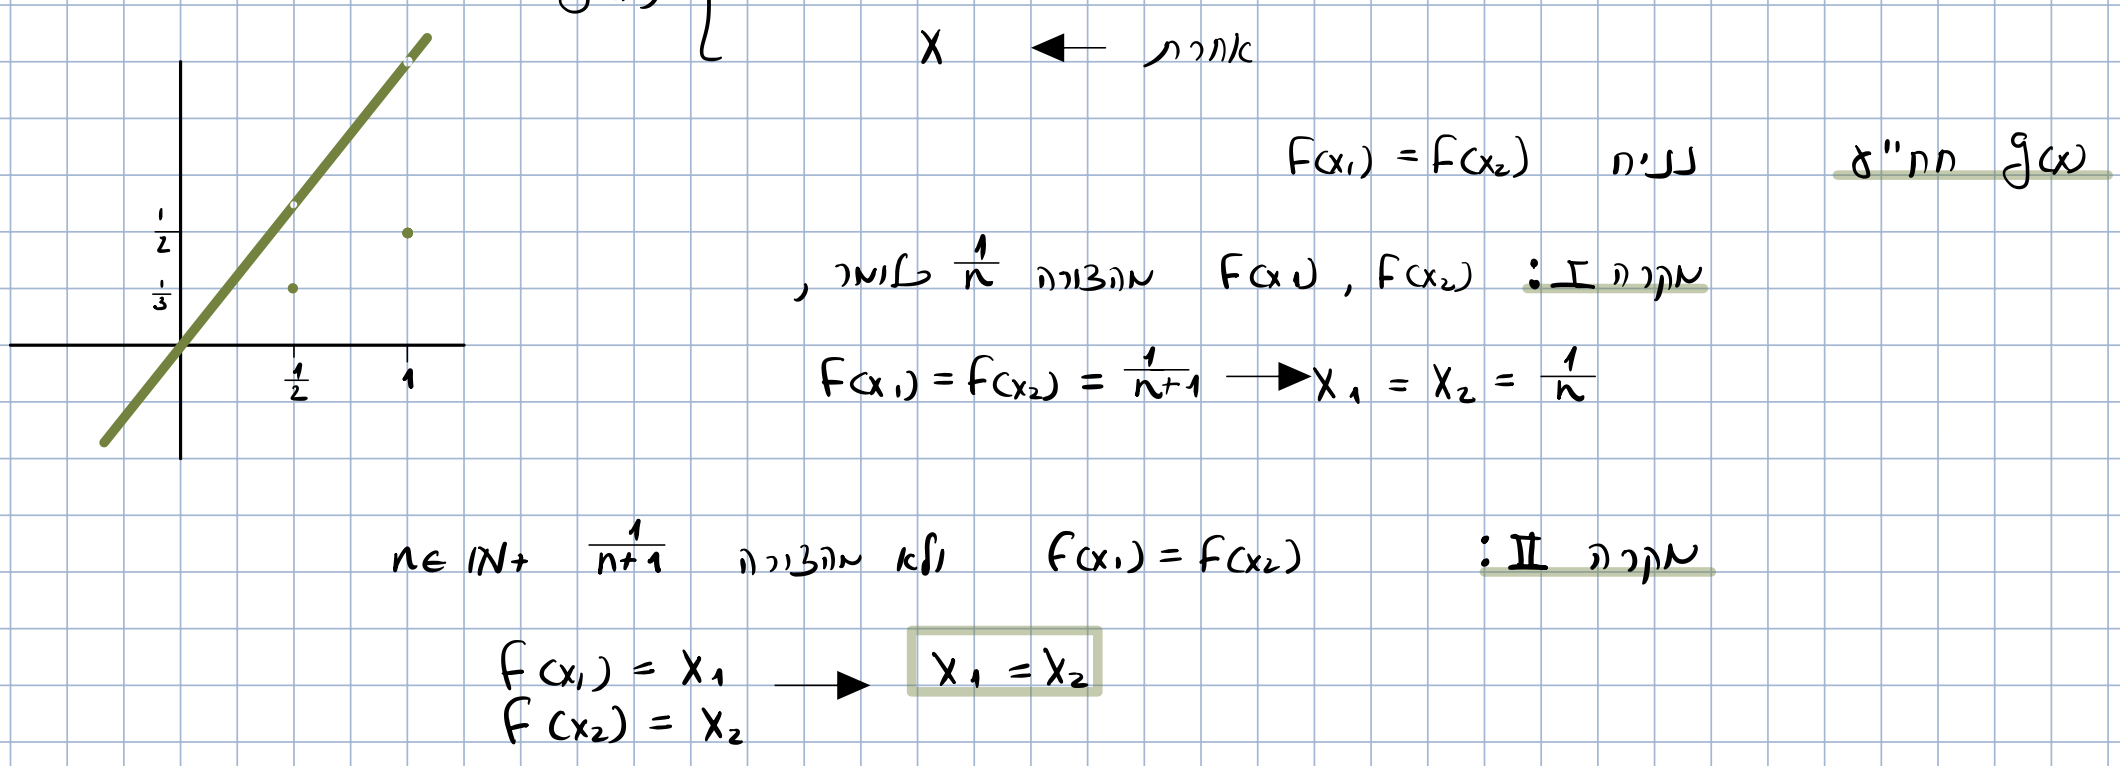 X ← אחרת
g(x) חח"ע נניח F(x₁) = F(x₂)
מקרה I: F(x₁), F(x₂) מהצורה 1/n כלומר,
F(x₁) = F(x₂) = 1/n+1 → X₁ = X₂ = 1/n
מקרה II: F(x₁) = F(x₂) ולא מהצורה 1/n+1 n∈ℕ+
F(x₁) = X₁ → X₁ = X₂
F(x₂) = X₂
1/2
1/3
1/2 1